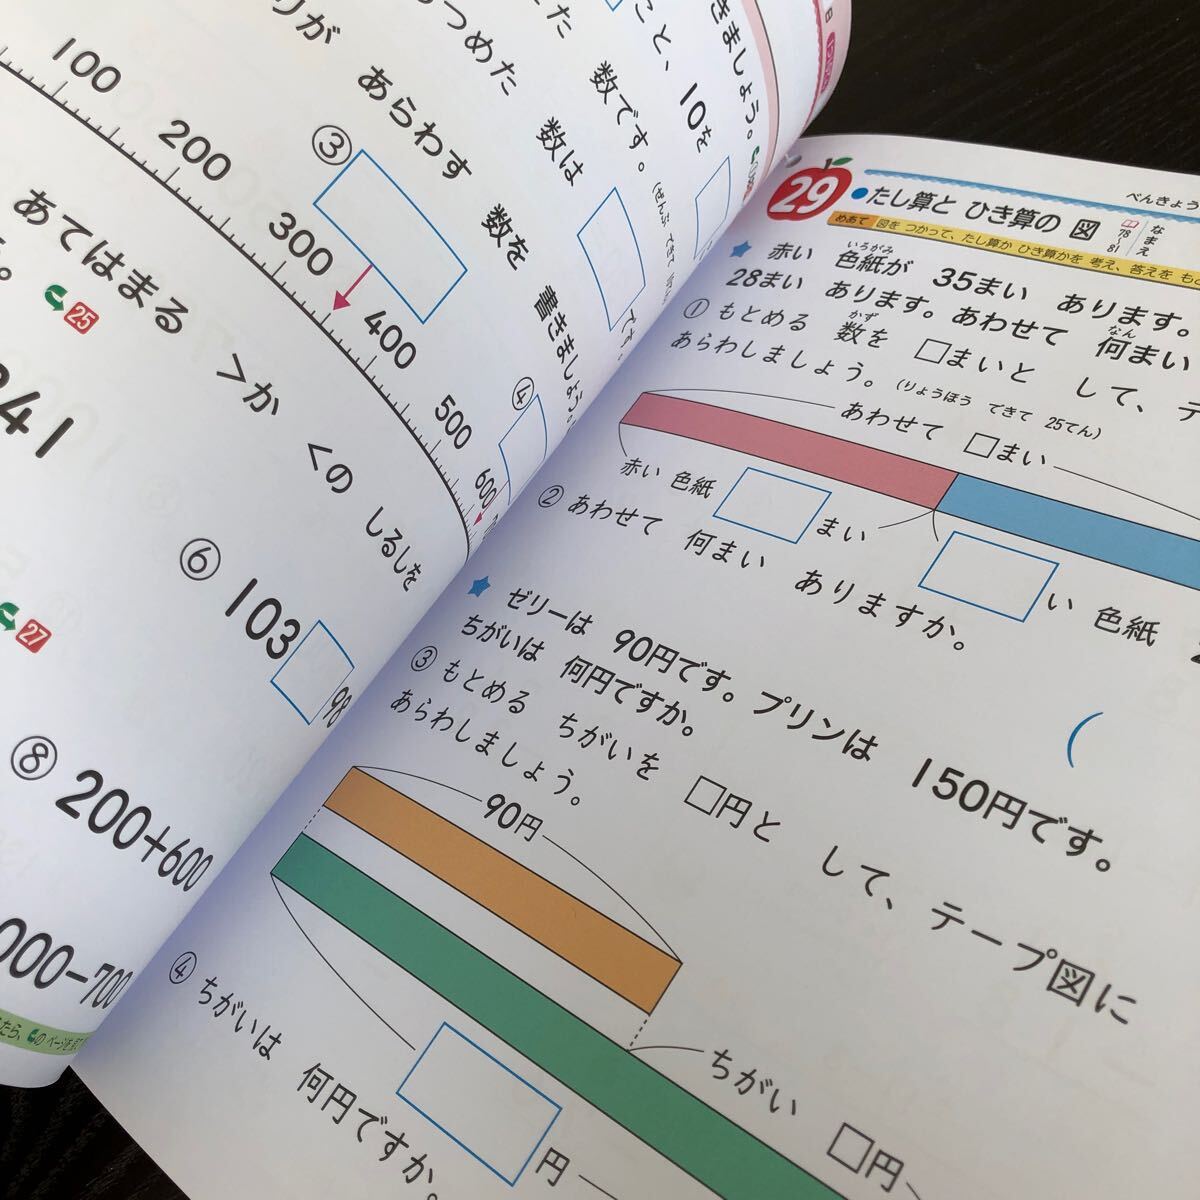 きましょう。
こと、10を
つめた 数です。
数は
が あらわす 数を 書きましょう。
100
200
300
400
500
600
③
④
です。
あてはまる >か <の しるしを
25
341
⑥ 103 □ 98
27
⑧ 200+600
000-700
29
たし算と ひき算の 図
べんきょう
78
81
なまえ
めあて 図を つかって、たし算か ひき算かを 考え、答えを
★ 赤い 色紙が 35まい あります。
いろがみ
28まい あります。あわせて 何まい
なん
① もとめる 数を □まいと して、テ
かず
あらわしましょう。(りょうほう できて 25てん)
あわせて □まい
赤い 色紙
まい
い 色紙
② あわせて 何まい ありますか。
(
★ ゼリーは 90円です。プリンは 150円です。
ちがいは 何円ですか。
③ もとめる ちがいを □円と して、テープ図に
あらわしましょう。
90円
ちがい □円
円
④ ちがいは 何円ですか。